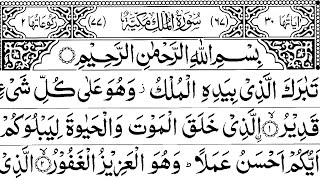 اٰیَاتُهَا ۳۰ (۶۷) سُوْرَةُ الْمُلْكِ مَكِّیَّةٌ (۷۷) رُكُوْعَاتُهَا ۲
بِسْمِ اللّٰهِ الرَّحْمٰنِ الرَّحِیْمِ
تَبٰرَكَ الَّذِیْ بِیَدِهِ الْمُلْكُ ؗ وَهُوَ عَلٰی كُلِّ شَیْءٍ
قَدِیْرُ ۙ﴿۱﴾ الَّذِیْ خَلَقَ الْمَوْتَ وَالْحَیٰوةَ لِیَبْلُوَكُمْ
اَیُّكُمْ اَحْسَنُ عَمَلًا ؕ وَهُوَ الْعَزِیْزُ الْغَفُوْرُ ۙ﴿۲﴾ الَّذِیْ